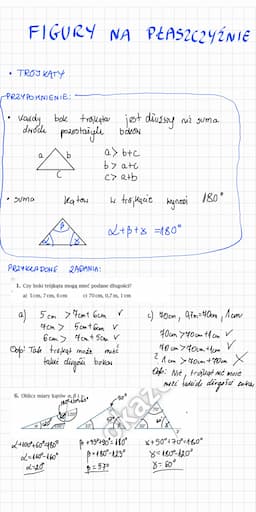 FIGURY NA PŁASZCZYŹNIE
• TRÓJKĄTY
PRZYPOMNIENIE:
• każdy bok trójkąta jest dłuższy niż suma
dwóch pozostałych boków
a b c
a > b+c
b > a+c
c > a+b
• suma kątów w trójkącie wynosi 180°
α β γ
α+β+γ = 180°
PRZYKŁADOWE ZADANIA:
1. Czy boki trójkąta mogą mieć podane długości?
a) 5 cm, 7 cm, 6 cm c) 70 cm, 0,7 m, 1 cm
a) 5 cm > 7cm+6cm ✓
7cm > 5cm+6cm ✓
6cm > 7cm+5cm ✓
Odp: Tak, trójkąt może mieć
takie długości boków
c) 70cm, 0,7m=70cm, 1cm
70cm>70cm+1cm ✓
70cm>70cm+1cm ✓
1cm>70cm+70cm
Odp: Nie, trójkąt nie może
mieć takich długości boków
6. Oblicz miary kątów α, β i γ.
α+100°+60°=180°
α=180°-160°
α=20°
β=180°-123°
β=57°
γ+50°+70°=180°
γ=180°-120°
γ=60°